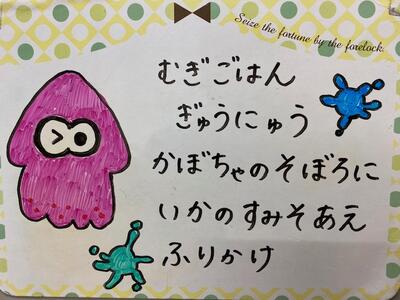 Seize the fortune by the forelock.
むぎごはん
ぎゅうにゅう
かぼちゃのそぼろに
いかのすみそあえ
ふりかけ